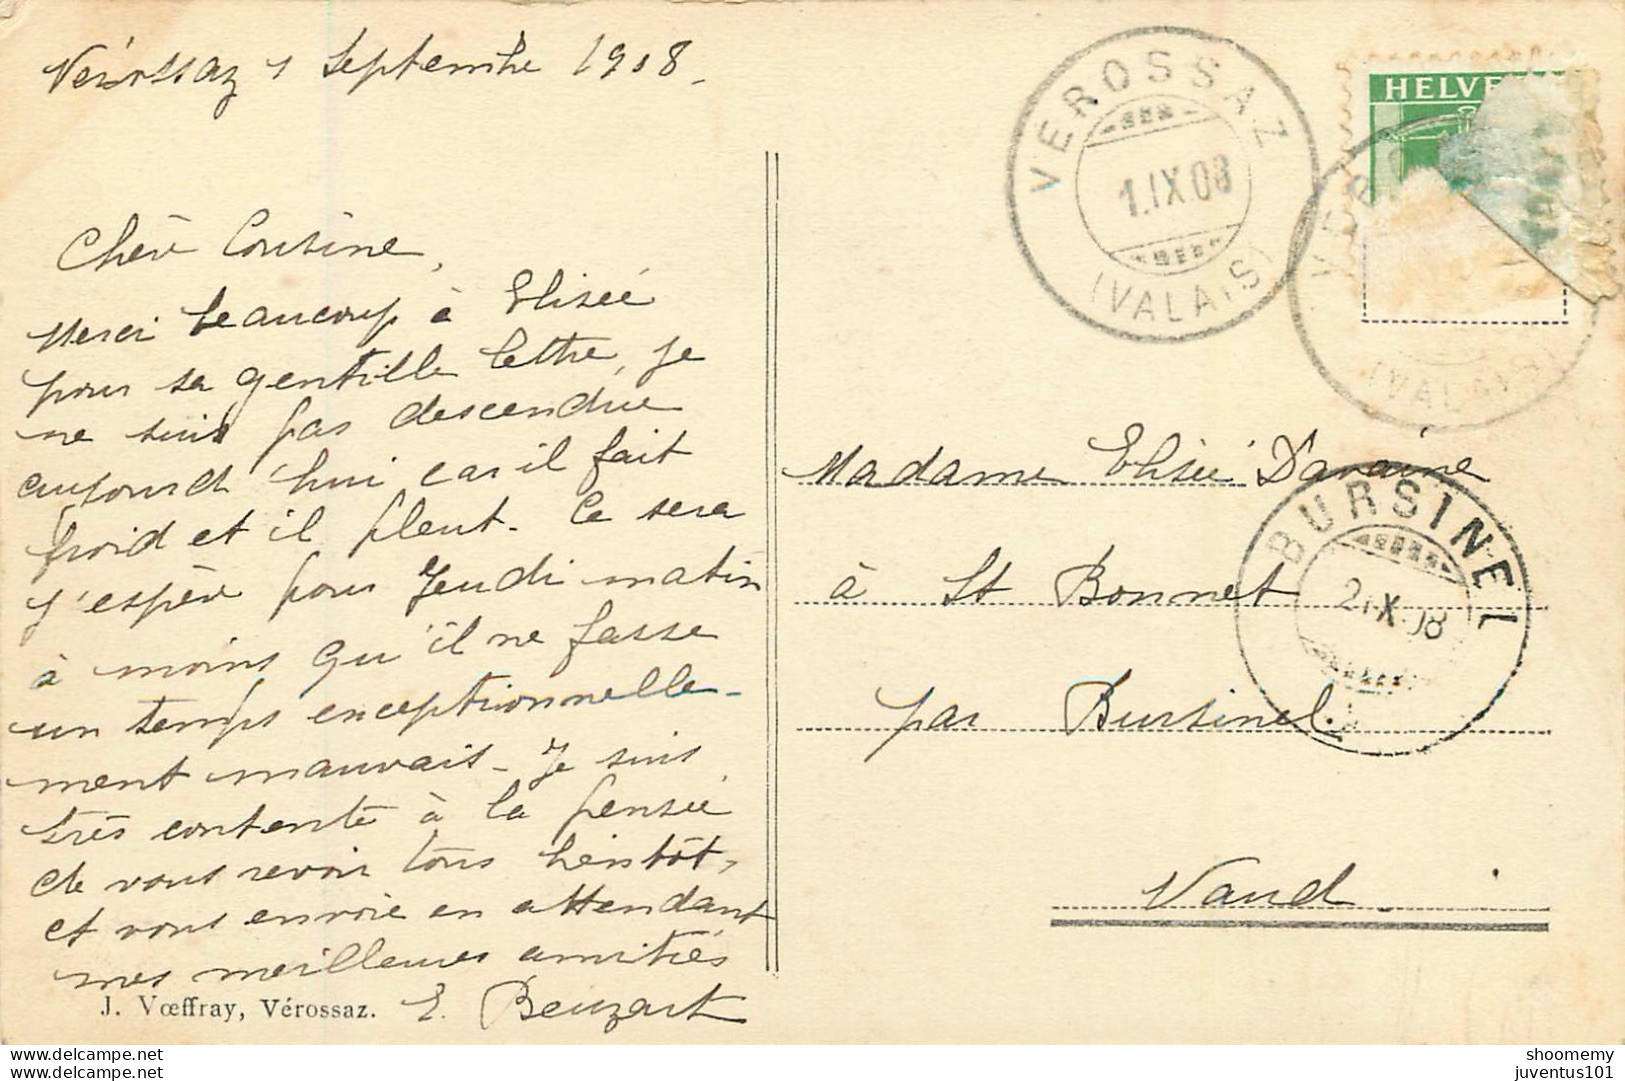 Vérossaz 1 Septembre 1908.
Chère Cousine,
Merci beaucoup à Elisée
pour sa gentille lettre, je
ne suis pas descendue
aujourd'hui car il fait
froid et il pleut. Ce sera
j'espère pour Jeudi matin
à moins qu'il ne fasse
un temps exceptionnelle-
ment mauvais. Je suis
très contente à la pensée
de vous revoir tous bientôt,
et vous envoie en attendant
mes meilleures amitiés
E. Beuzart
J. Vœffray, Vérossaz.
VEROSSAZ
1.IX.08
(VALAIS)
HELVE
VER
(VALAIS)
Madame Elisée
à St Bonnet
par Bursinel.
Vaud.
BURSINEL
2.IX.08
www.delcampe.net
www.delcampe.net
shoomemy
juventus101